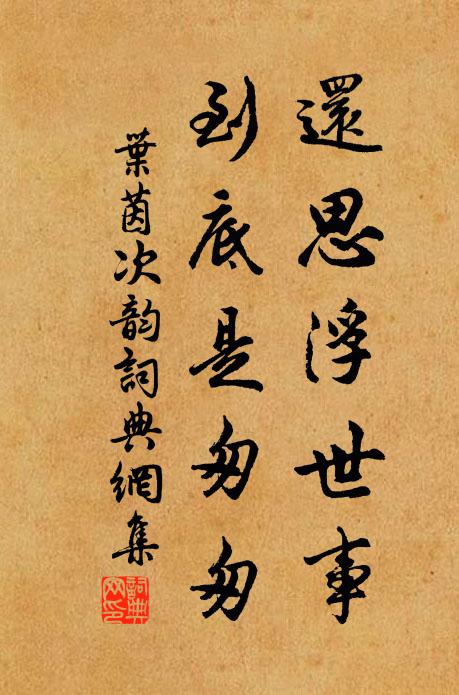 還思浮世事
到底是匆匆
葉茵次韵詞典網集
詞典
网印